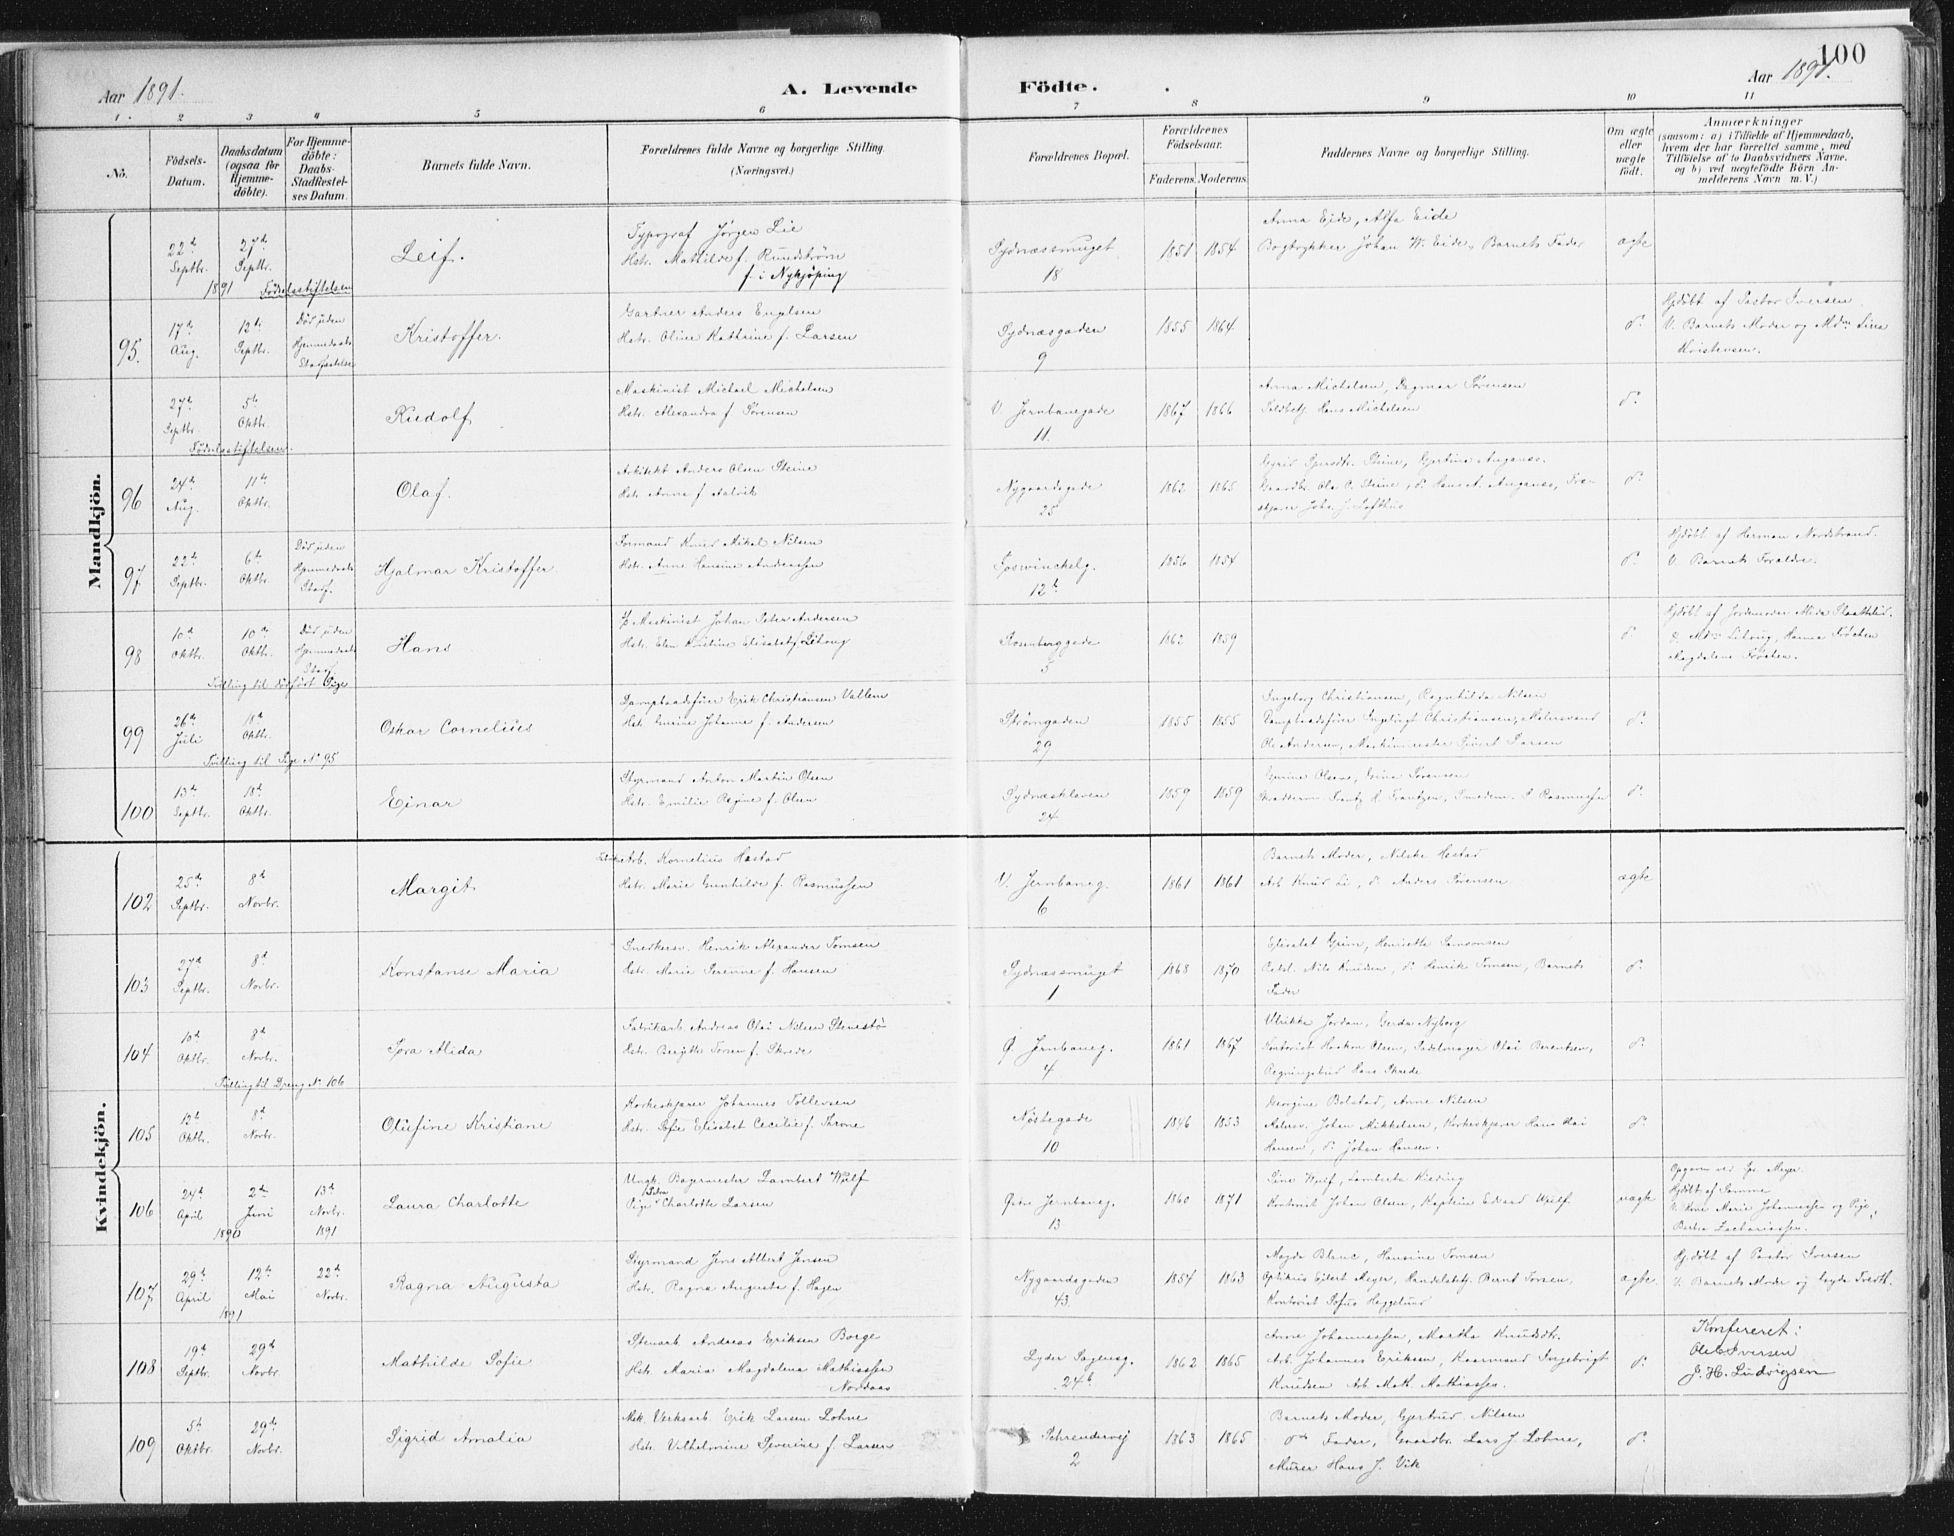 100
Aar 1891.
A. Levende
Födte.
Aar 1891.
1. 2 3 4 5 6 7 8 9 10 11
No.
Födsels-Datum.
Daabsdatum (ogsaa for Hjemme-döbte).
For Hjemme-döbte: Daabs-Stadfæstel-ses Datum.
Barnets fulde Navn.
Forældrenes fulde Navne og borgerlige Stilling. (Næringsvei.)
Forældrenes Bopæl.
Forældrenes Födselsaar.
Faderens. Moderens.
Faddernes Navne og borgerlige Stilling.
Om ægte eller uægte födt.
Anmærkninger
(saasom: a) i Tilfælde af Hjemmedaab, hvem der har forrettet samme, med Tilföielse af to Daabsvidners Navne, og b) ved uægtefödte Börn An-melderens Navn m. V.)
Mandkjön.
22de Septbr. 27de Septbr. Leif.
Typograf Jørgen Lie
Hstr. Mathilde f. Rundström
f. i Nykjöping
Sydnæssmuget 18 1851 1854
Anna Eide, Alfa Eide
Bogtrykker Johan W. Eide, Barnets Fader
ægte
1891 Födselsstiftelsen
95. 17de Aug. 12te Septbr. Död uden Hjemmedaabs Stadfæstelse Kristoffer.
Gartner Anders Engelsen
Hstr. Oline Kathrine f. Larsen
Sydnæsgaden 9 1855 1864 do
Hjdöbt af Pastor Iversen
V. Barnets Moder og Mdm Line
Kristensen.
27de Septbr. 5te Oktbr. Rudolf
Maskinist Michael Michelsen
Hstr. Alexandra f. Sörensen
V. Jernbanegade 11. 1867 1866
Anna Michelsen, Dagmar Sörensen
Hans Michelsen
do
Födselsstiftelsen.
96 24de Aug. 11te Oktbr. Olaf.
Arkitekt Anders Olsen Steine
Hstr. Anna f. Aalvik
Nygaardsgade 25 1862 1865
Gaardbr. Ola O. Steine, do Hans A.
do
97 22de Septbr. 6te Oktbr. Död uden Hjemmedaabs Stadf. Hjalmar Kristoffer
Formand Knud Mikal Nilsen
Hstr. Anne Hansine Andreassen
12b 1856 1854 do
Hjdöbt af Herman Nordstrand.
V. Barnets Forældre.
98 10de Oktbr. 10de Oktbr. Död uden Hjemmedaabs Stadf. Hans
Maskinist Johan Peter Andersen
Hstr. Elen Kristine Elisabeth
Rosenberggade 5 1862 1859 do
Hjdöbt af Jordemoder
Magdalene
Tvilling til dödfödt Pige
99 26de Juli 18de Oktbr. Oskar Cornelius
Dampbaadsförer Erik Christiansen Vallem
Hstr. Gurine Johanne f. Andersen
Strömgaden 29 1855 1855
Ingeborg Christiansen, Ragnhilda Nilsen
Dampbaadsförer Ingebrigt Christiansen,
Ole Andersen, Maskinmester Sjvert Larsen
do
Tvilling til Pige No 95
100 13de Septbr. 18de Oktbr. Einar
Styrmand Anton Martin Olsen
Hstr. Emilie Regine f. Olsen
Sydnæskleven 24 1859 1859
Gurine Olsen, Sörensen
Frantz H. Frantzen, Smedem. P. Rasmussen
do
Kvindekjön.
102 25de Septbr. 8de Novbr. Margit
Arb. Kornelius Hæstad
Hstr. Marie Gunhilde f. Rasmussen
V. Jernbaneg. 6 1861 1861
Barnets Moder, Hestad
Arb. Knud Li, do Anders Sörensen
ægte
103 27de Septbr. 8de Novbr. Konstanse Maria
Snedkersv. Henrik Alexander Tomsen
Hstr. Marie Serine f. Hansen
Sydnæssmuget 1 1868 1870
Elisabet Grim, Henriette Samsonsen
Nils Knudsen, do Henrik Tomsen, Barnets
Fader
do
104 10de Oktbr. 8de Novbr. Tora Alida
Fabrikarb. Andreas Olai Nilsen Stenestö
Hstr. Bergitte f. Skrede
Ø. Jernbaneg. 4 1861 1867
Ulrikke Jordan, Gerda Nyborg
Kontorist Haakon Olsen, Sadelmager Olai Berentsen,
Regningsbud Hans Skrede
do
Tvilling til Dreng No 106
105 12te Oktbr. 8de Novbr. Olufine Kristiane
Korkeskjærer Johannes Tollevsen
Hstr. Sofie Elisabet Cecilie f. Krone
Nöstegade 10 1846 1853
Georgine Bolstad, Anne Nilsen
Malersv. Johan Mikkelsen, Korkeskjærer Hans
Hansen, do Johan Hansen.
do
106 24de April 2den Juni 13de Novbr. Laura Charlotte
1890 1891
Ungk. Bagmester Lambert Wulf
Pige Petra Charlotte Larsen
Østre Jernbaneg. 13 1860 1871
Line Wulf, Lamberta
Kontorist Johan Olsen, Kaptein Edvard Wulf.
uægte
Opgaven ved Meyer.
Hjdöbt af Samme
V. Marie Johannessen og Pige
Zachariassen.
107 29de April 12te Mai 22de Novbr. Ragna Augusta
1891
Styrmand Jens Albert Jensen
Hstr. Ragna Augusta f. Hagen
Nygaardsgaden 43 1854 1863
Magda Blanc, Hansine Tomsen
Optikus Eilert Meyer, Handelsbetj. Bernt Tomsen,
Kontorist Sofus Heggelund
ægte
Hjdöbt af Pastor Iversen
V. Barnets Moder og
108 19de Septbr. 29de Novbr. Mathilde Sofie
Stenarb. Andreas Eriksen Borge
Hstr. Maria Magdalena Mathiassen
Nordaas
Lyder Sagensg. 24b 1862 1865
Anne Johannessen, Martha Knudsdtr.
Arb. Johannes Eriksen, Ingebrigt
Knudsen Arb. Math. Mathiassen.
do
Konfereret:
Ole Iversen
J. H. Ludvigsen
109 5te Oktbr. 29de Novbr. Sigrid Amalia
Mek. Verksarb. Erik Larsen Lohne
Hstr. Vilhelmine Severine f. Larsen
Schrendersvej 2 1863 1865
Barnets Moder, Gjertrud Nilsen
do Fader, Gaardbr. Lars J. Lohne,
Murer Hans J. Vik
do